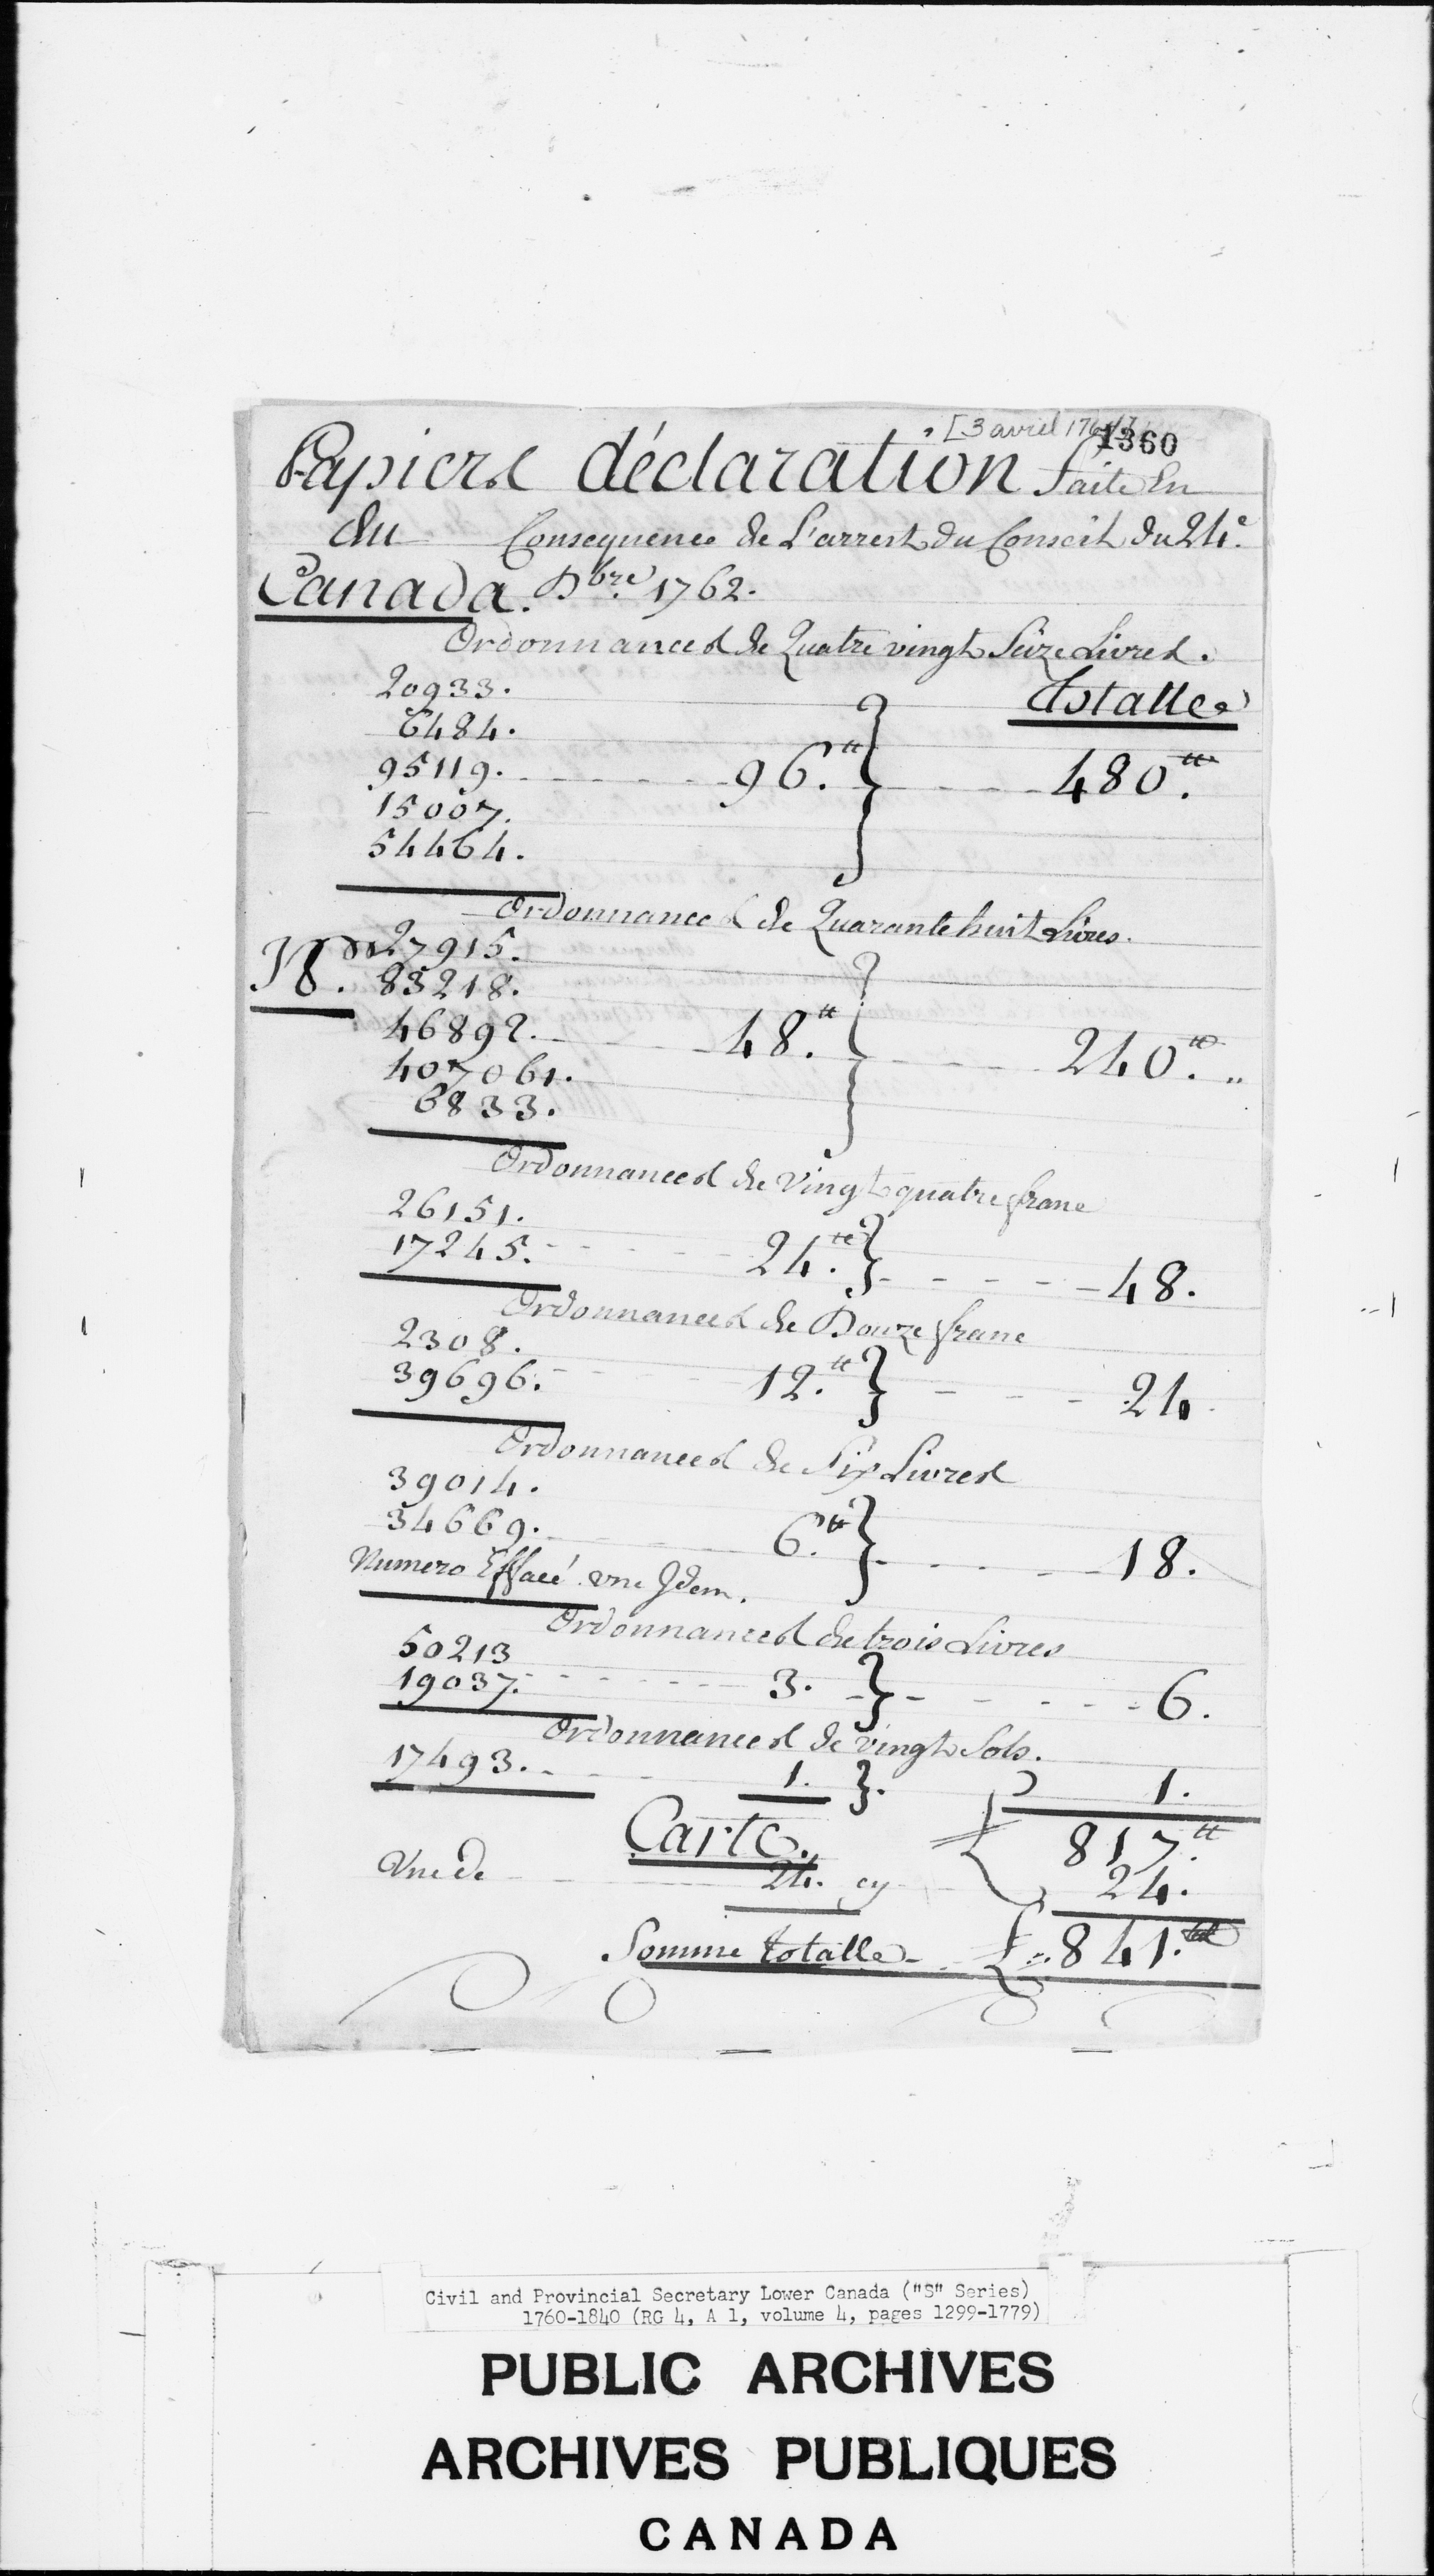 [3 avril 176
1360
Papiers déclaration faite En
du Consequence de L'arrest du Conseil du 24e.
Canada. Dbre. 1762.
Ordonnances de Quatre vingt Seize Livres.
Totalle
20933.
6484.
95119. 96.tt } 480.tt
15007.
54464.
Ordonnances de Quarante huit Livres.
27915.
83218.
46892. 48.tt } 240.tt
407061.
6833.
Ordonnances de vingt quatre franc
26151.
17245. 24.tt } 48.
Ordonnances de Douze franc
2308.
39696. 12.tt } 24
Ordonnances de Six Livres
39014.
34669. 6.tt } 18.
Numero Effacé une Idem.
Ordonnances de trois Livres
50213
19037. 3. } 6.
Ordonnances de vingt Sols.
17493. 1. }. 1.
Carte. 817.tt
Une de 24. cy 24.
Somme totalle £ 841.tt
Civil and Provincial Secretary Lower Canada ("S" Series)
1760-1840 (RG 4, A 1, volume 4, pages 1299-1779)
PUBLIC ARCHIVES
ARCHIVES PUBLIQUES
CANADA